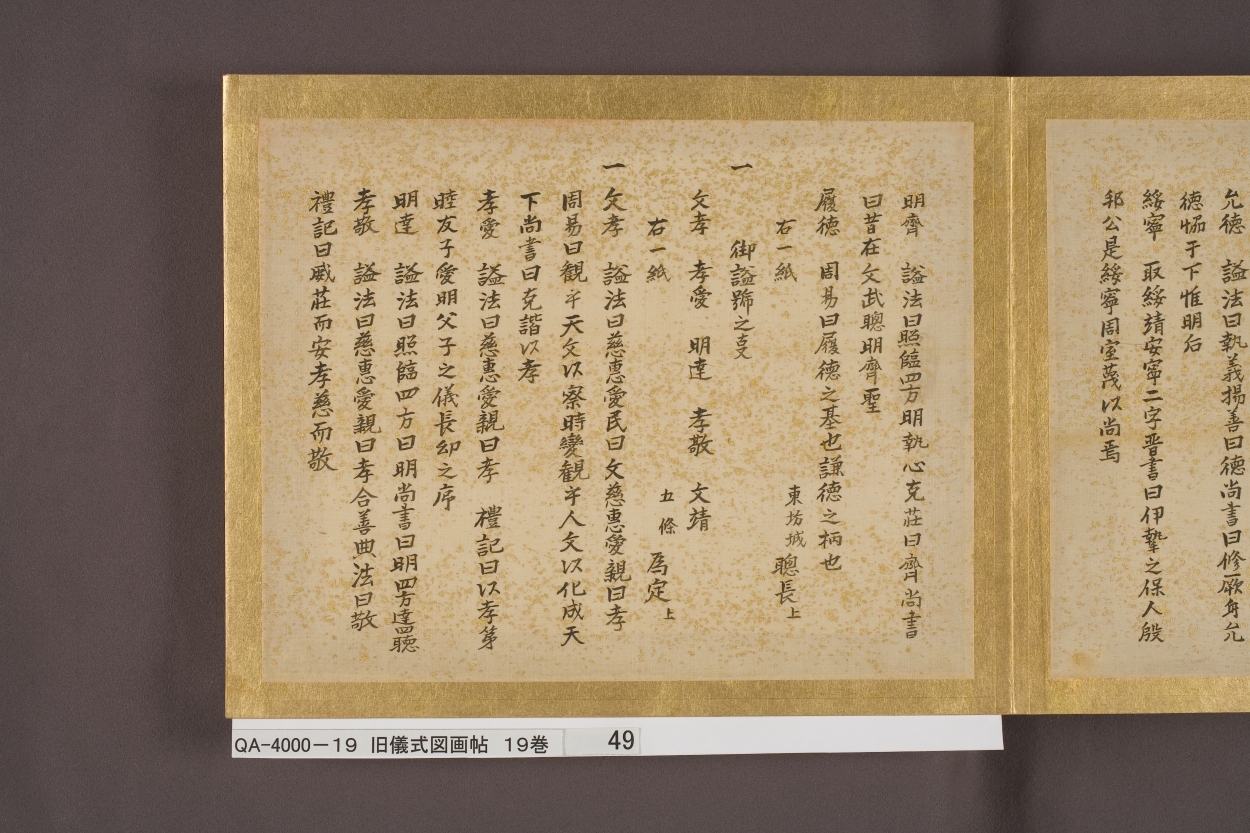 允徳　謚法曰執義揚善曰徳尚書曰修厥身允
徳恊于下惟明后
綏寧　取綏靖安寧二字晋書曰伊摯之保人殷
邦公是綏寧周室蔑以尚焉
明齊　謚法曰照臨四方明執心克莊曰齊尚書
曰昔在文武聰明齊聖
履徳　周易曰履徳之基也謙徳之柄也
右一紙　東坊城聰長上
一　御謚號之支
文孝　孝愛　明達　孝敬　文靖
右一紙　五條為定上
一　文孝　謚法曰慈惠愛民曰文慈惠愛親曰孝
周易曰観乎天文以察時變観乎人文以化成天
下尚書曰克諧以孝
孝愛　謚法曰慈惠愛親曰孝　禮記曰以孝第
睦友子愛明父子之儀長幼之序
明達　謚法曰照臨四方曰明尚書曰明四方達四聰
孝敬　謚法曰慈惠愛親曰孝合善典法曰敬
禮記曰威莊而安孝慈而敬
QA-4000－19　旧儀式図画帖　19巻　49